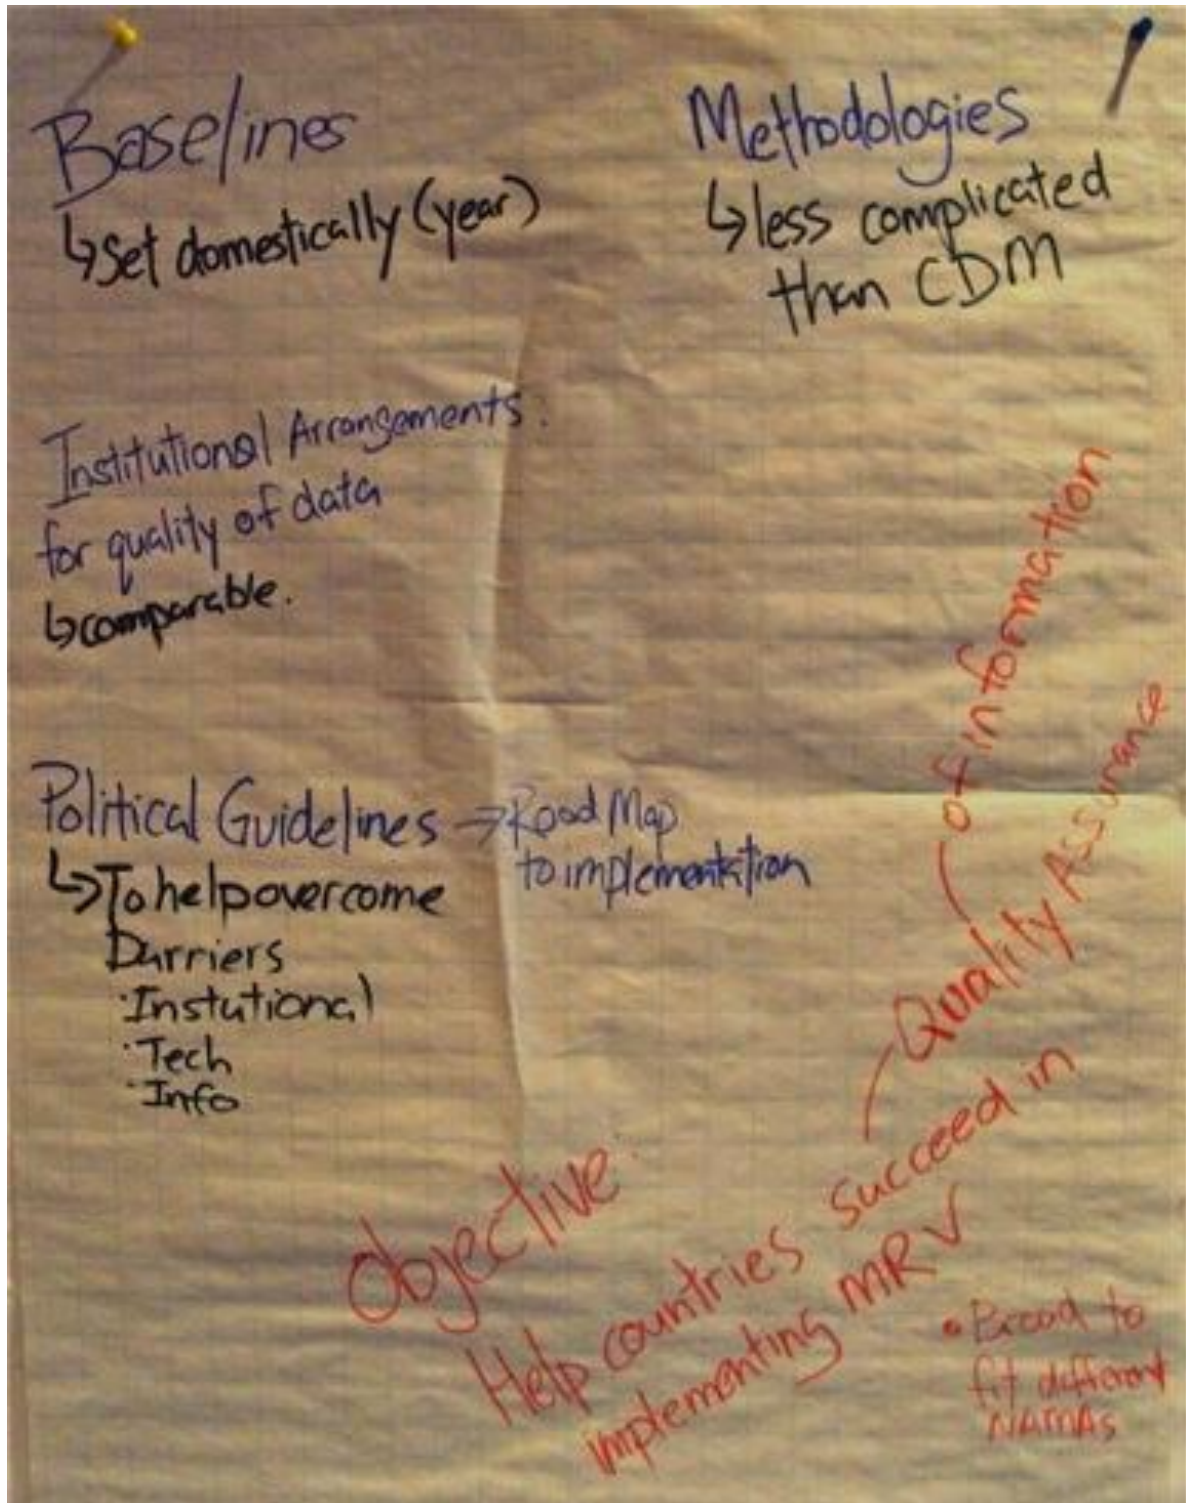 Baselines
↳ Set domestically (year)
Methodologies
↳ less complicated
than CDM
Institutional Arrangements.
for quality of data
↳ comparable.
Political Guidelines → Road Map
to implementation
↳ To help overcome
Barriers
· Instutional
· Tech
· Info
Objective:
Help countries succeed in
implementing MRV
Quality Assurance
of information
• Broad to
fit different
NAMAs